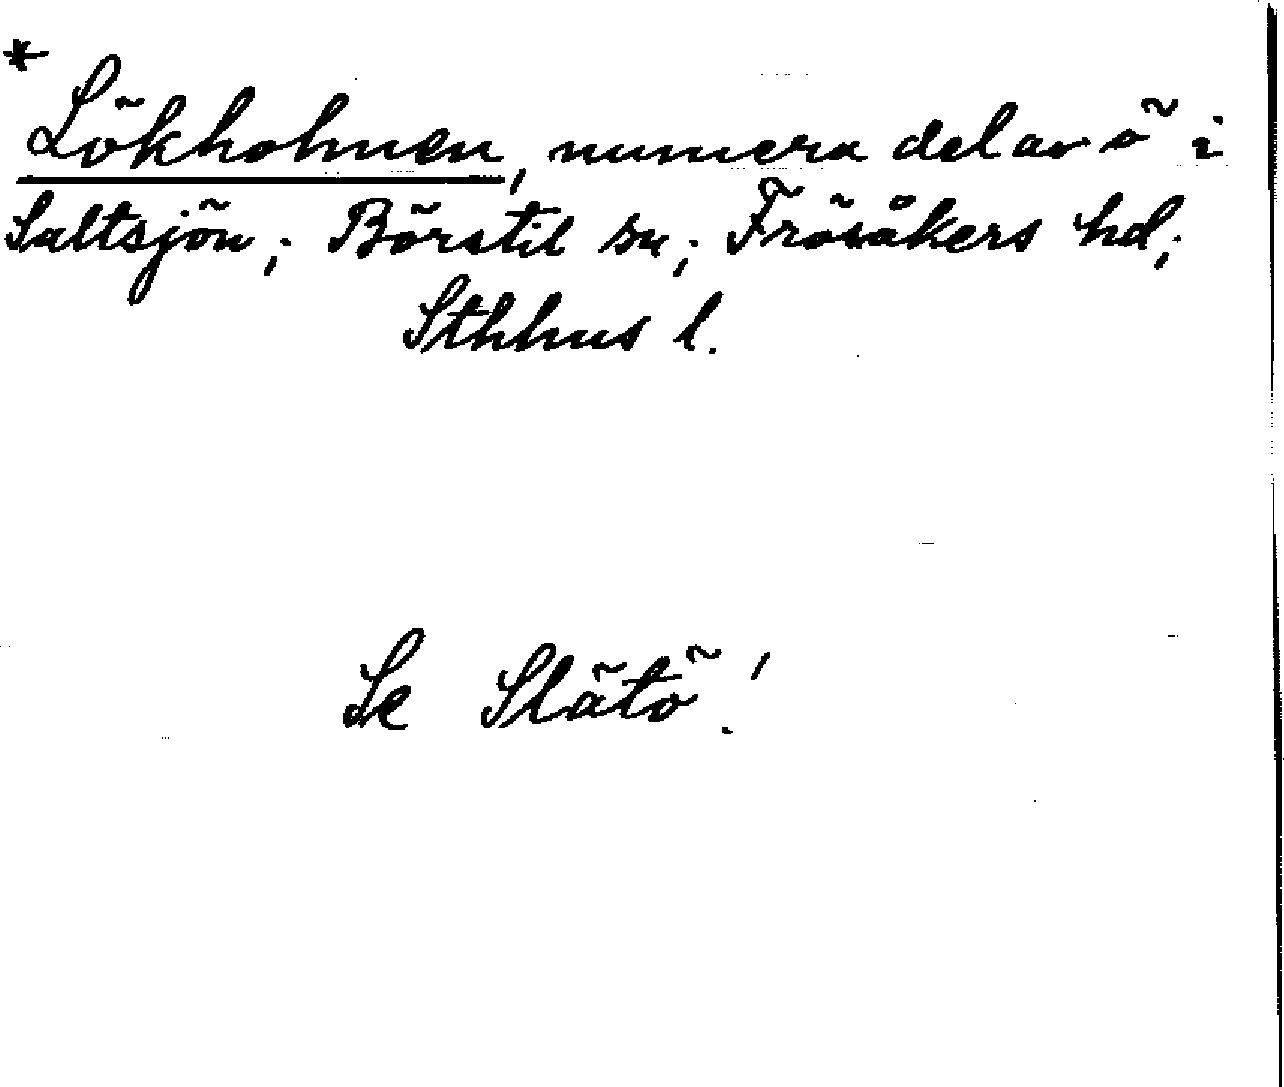 * Lökholmen, numera del av ö i
Saltsjön; Börstil sn; Frösåkers hd;
Sthhus l.
Se Slätö!